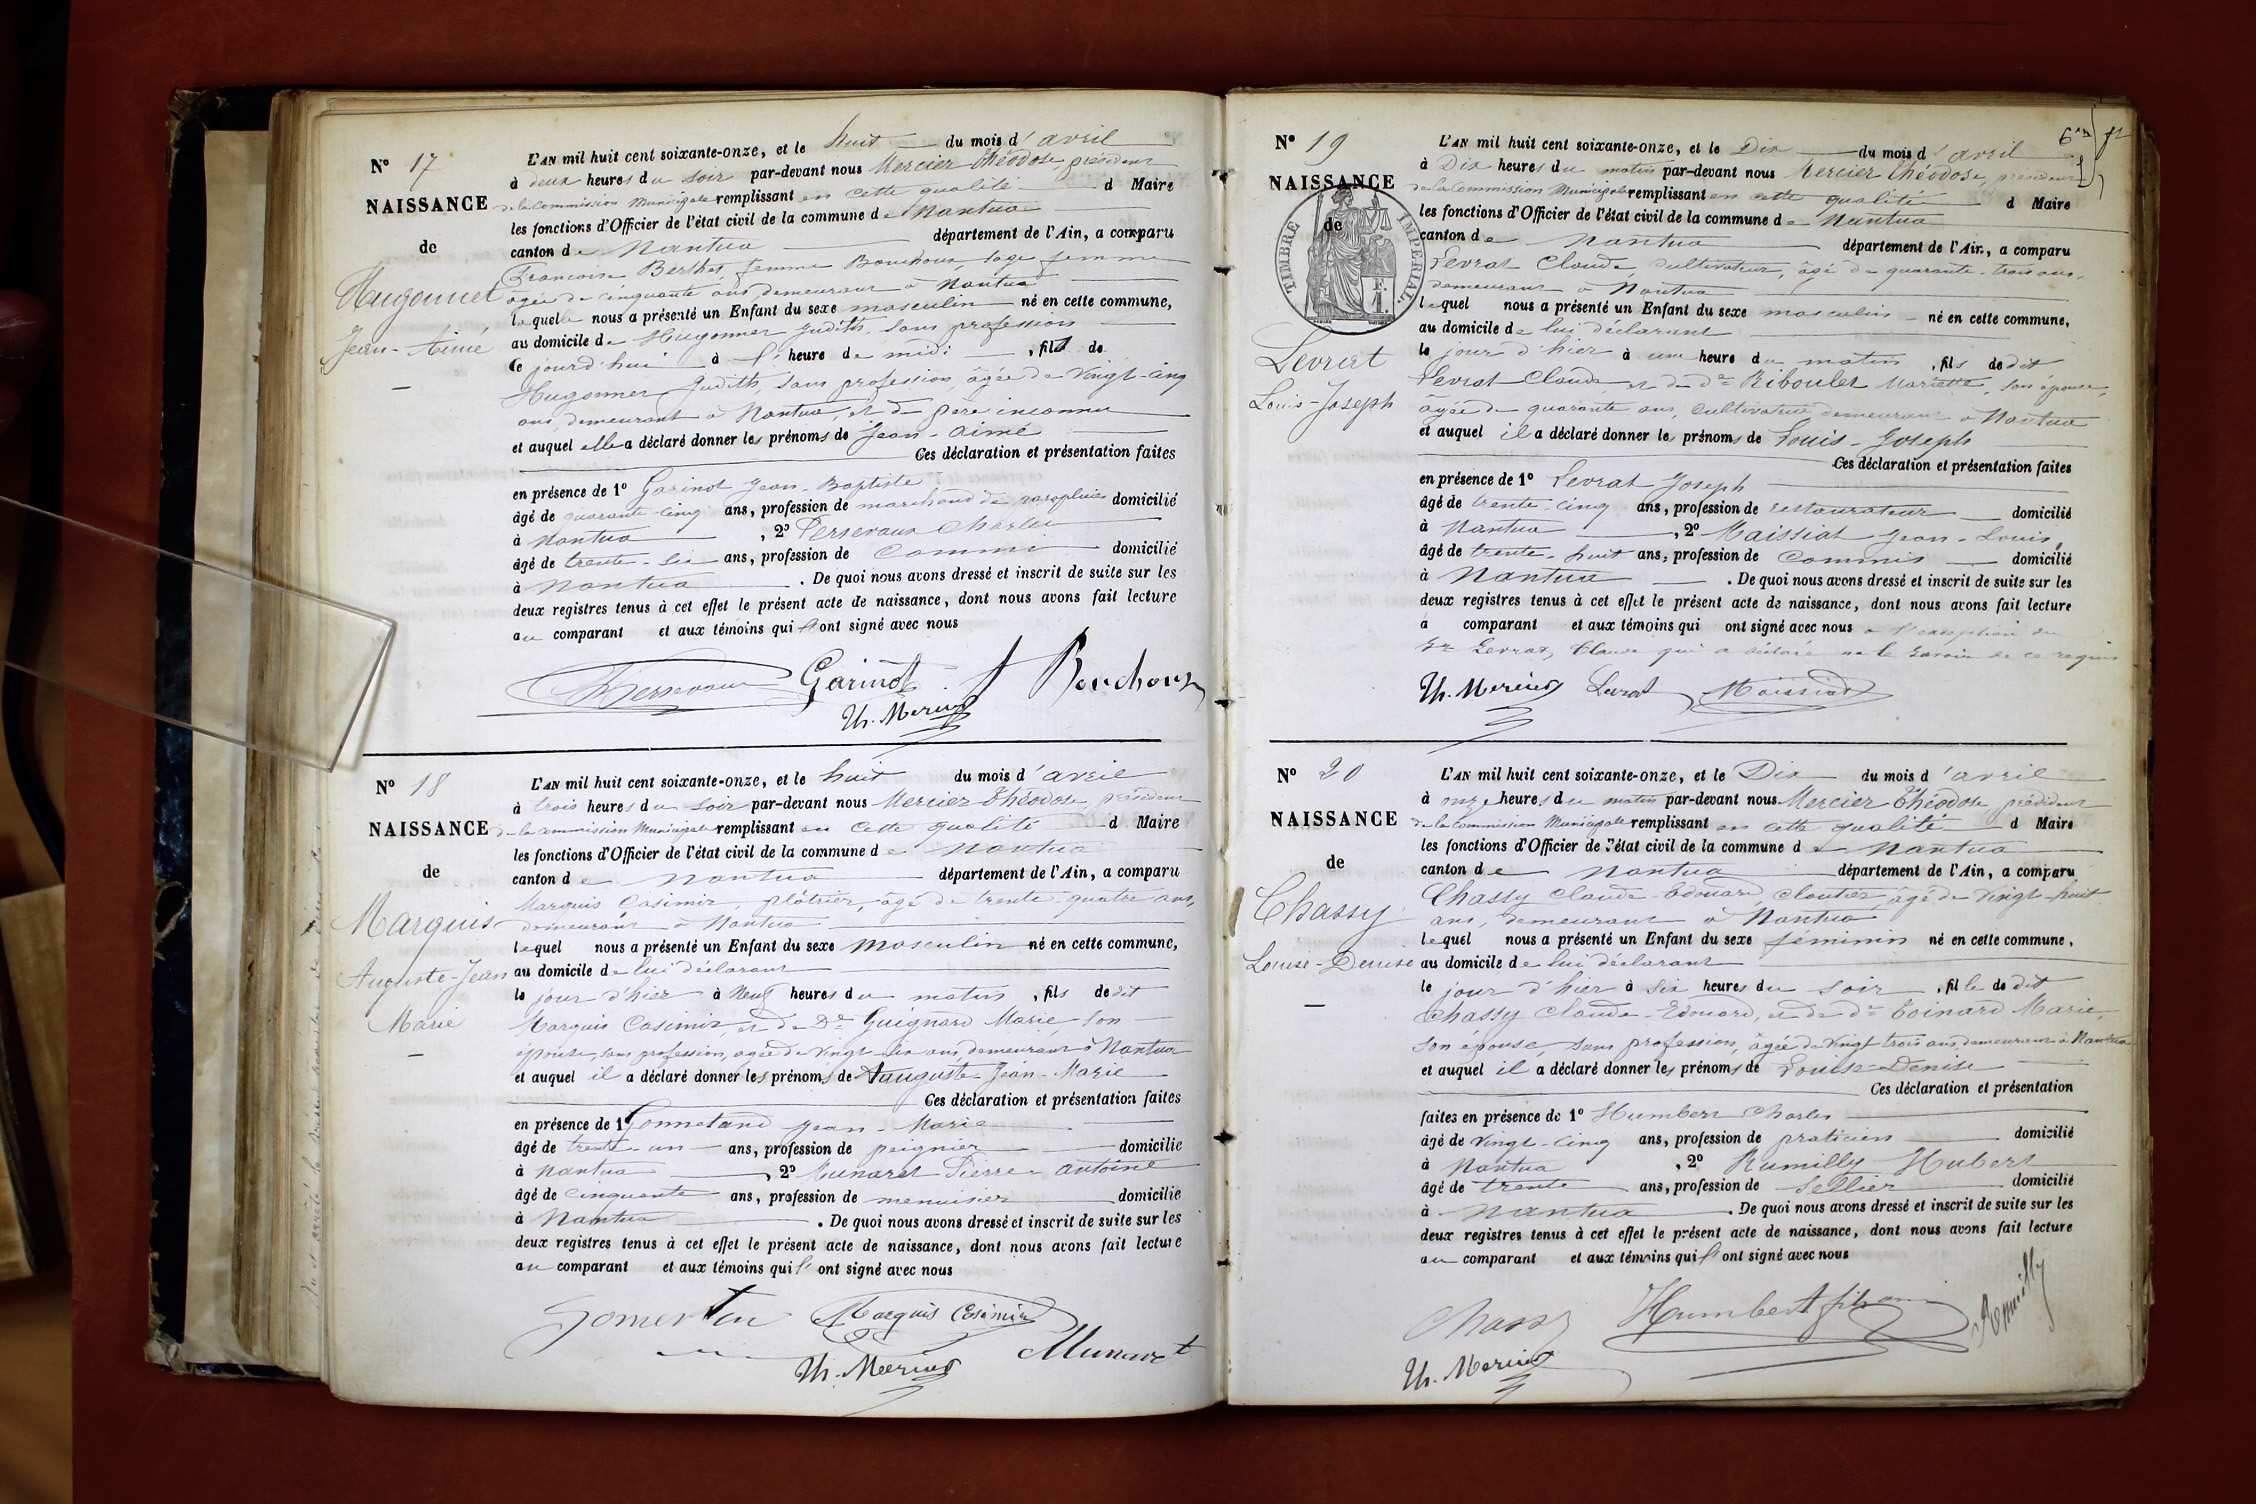 N° 17
NAISSANCE
de
Hugonnet
Jean-Aimé
L'AN mil huit cent soixante-onze, et le huit du mois d'avril
à deux heures du soir par-devant nous Mercier Théodose, président
de la Commission Municipale remplissant en cette qualité d Maire
les fonctions d'Officier de l'état civil de la commune de Nantua
canton de Nantua département de l'Ain, a comparu
Françoise Berthet, femme Bouchoux, sage femme
agée de cinquante ans demeurant à Nantua
laquelle nous a présenté un Enfant du sexe masculin né en cette commune,
au domicile de Hugonnet Judith, sans profession
ce jourd'hui à l'heure de midi, fils de
Hugonnet Judith, sans profession, âgée de vingt-cinq
ans, demeurant à Nantua, et de père inconnu
et auquel elle a déclaré donner les prénoms de Jean-Aimé
Ces déclaration et présentation faites
en présence de 1° Garinot Jean-Baptiste
âgé de quarante-cinq ans, profession de marchand de parapluies domicilié
à Nantua, 2° Persevaux Charles
âgé de trente-six ans, profession de Commis domicilié
à Nantua. De quoi nous avons dressé et inscrit de suite sur les
deux registres tenus à cet effet le présent acte de naissance, dont nous avons fait lecture
au comparant et aux témoins qui l'ont signé avec nous
Persevaux Garinot f Bouchoux
Th. Mercier
N° 18
NAISSANCE
de
Marquis
Auguste-Jean
Marie
L'AN mil huit cent soixante-onze, et le huit du mois d'avril
à trois heures du soir par-devant nous Mercier Théodose, président
de la Commission Municipale remplissant en cette qualité d Maire
les fonctions d'Officier de l'état civil de la commune de Nantua
canton de Nantua département de l'Ain, a comparu
Marquis Casimir, plâtrier, âgé de trente-quatre ans,
demeurant à Nantua
lequel nous a présenté un Enfant du sexe masculin né en cette commune,
au domicile de lui déclarant
le jour d'hier à Neuf heures du matin, fils de dit
Marquis Casimir, et de De Guignard Marie, son
épouse, sans profession, agée de vingt-six ans, demeurant à Nantua
et auquel il a déclaré donner les prénoms de Auguste-Jean-Marie
Ces déclaration et présentation faites
en présence de 1° Gonnetand Jean-Marie
âgé de trente-un ans, profession de peignier domicilié
à Nantua, 2° Munaret Pierre-Antoine
âgé de cinquante ans, profession de menuisier domicilié
à Nantua. De quoi nous avons dressé et inscrit de suite sur les
deux registres tenus à cet effet le présent acte de naissance, dont nous avons fait lecture
au comparant et aux témoins qui l'ont signé avec nous
Marquis Casimir
Th. Mercier Munaret
N° 19
NAISSANCE
de
TIMBRE IMPÉRIAL
F.
1.
Levrat
Louis-Joseph
6me f
L'AN mil huit cent soixante-onze, et le Dix du mois d'avril
à Dix heures du matin par-devant nous Mercier Théodose, président
de la Commission Municipale remplissant en cette qualité d Maire
les fonctions d'Officier de l'état civil de la commune de Nantua
canton de Nantua département de l'Ain, a comparu
Levrat Claude, cultivateur, âgé de quarante-trois ans,
demeurant à Nantua
lequel nous a présenté un Enfant du sexe masculin né en cette commune,
au domicile de lui déclarant
le jour d'hier à une heure du matin, fils de dit
Levrat Claude et de de Riboulet Mariette, son épouse,
âgée de quarante ans, cultivatrice demeurant à Nantua
et auquel il a déclaré donner les prénoms de Louis-Joseph
Ces déclaration et présentation faites
en présence de 1° Levrat Joseph
âgé de trente-cinq ans, profession de restaurateur domicilié
à Nantua, 2° Maissiat Jean-Louis,
âgé de trente-huit ans, profession de Commis domicilié
à Nantua. De quoi nous avons dressé et inscrit de suite sur les
deux registres tenus à cet effet le présent acte de naissance, dont nous avons fait lecture
à comparant et aux témoins qui ont signé avec nous à l'exception du
Sr Levrat, Claude qui a déclaré ne le savoir de ce requis
Th. Mercier Levrat Maissiat
N° 20
NAISSANCE
de
Chassy
Louise-Denise
L'AN mil huit cent soixante-onze, et le Dix du mois d'avril
à onze heures du matin par-devant nous Mercier Théodose, président
de la Commission Municipale remplissant en cette qualité d Maire
les fonctions d'Officier de l'état civil de la commune de Nantua
canton de Nantua département de l'Ain, a comparu
Chassy Claude-Edouard, cloutier, âgé de vingt-huit
ans, demeurant à Nantua
lequel nous a présenté un Enfant du sexe féminin né en cette commune,
au domicile de lui déclarant
le jour d'hier à six heures du soir, fille de dit
Chassy Claude-Edouard, et de de Coinard Marie,
son épouse, sans profession, âgée de vingt trois ans demeurant à Nantua
et auquel il a déclaré donner les prénoms de Louise-Denise
Ces déclaration et présentation
faites en présence de 1° Humbert Charles
âgé de vingt-cinq ans, profession de praticien domicilié
à Nantua, 2° Rumilly Hubert
âgé de trente ans, profession de Sellier domicilié
à Nantua. De quoi nous avons dressé et inscrit de suite sur les
deux registres tenus à cet effet le présent acte de naissance, dont nous avons fait lecture
au comparant et aux témoins qui l'ont signé avec nous
Chassy Humbert fils Rumilly
Th. Mercier